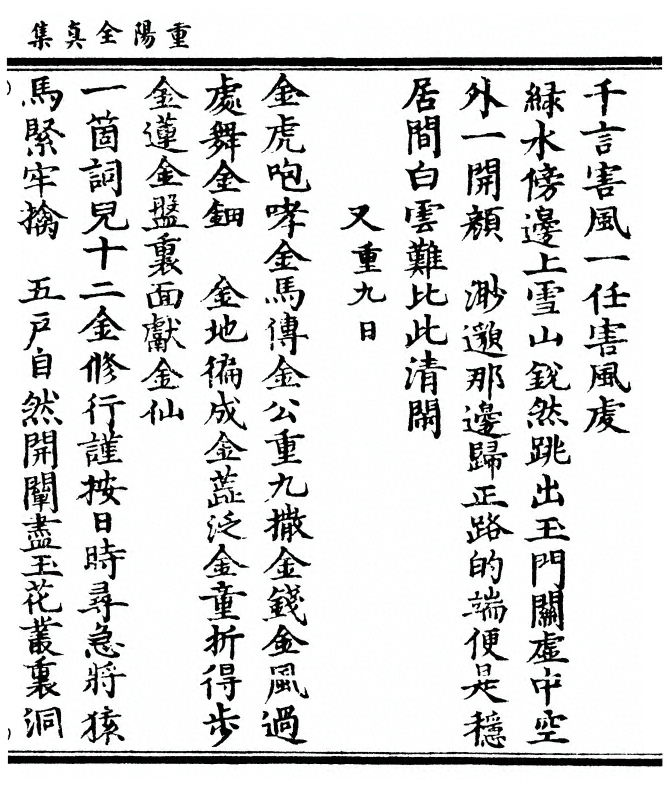 重陽全真集
千言害風一任害風處
綠水傍邊上雪山銳然跳出玉門關虛中空
外一開顏　渺邈那邊歸正路的端便是穩
居間白雲難比此清閑
又重九日
金虎咆哮金馬傳金公重九撒金錢金風過
處舞金鈿　金地徧成金蘂泛金童折得步
金蓮金盤裏面獻金仙
一箇詞兒十二金修行謹按日時尋急將猿
馬緊牢擒　五戶自然開闡盡玉花叢裏洞